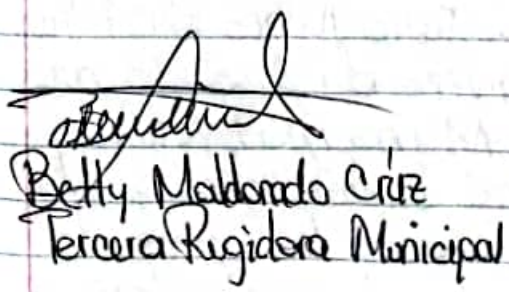 Betty Maldonado Crúz
Tercera Regidora Municipal